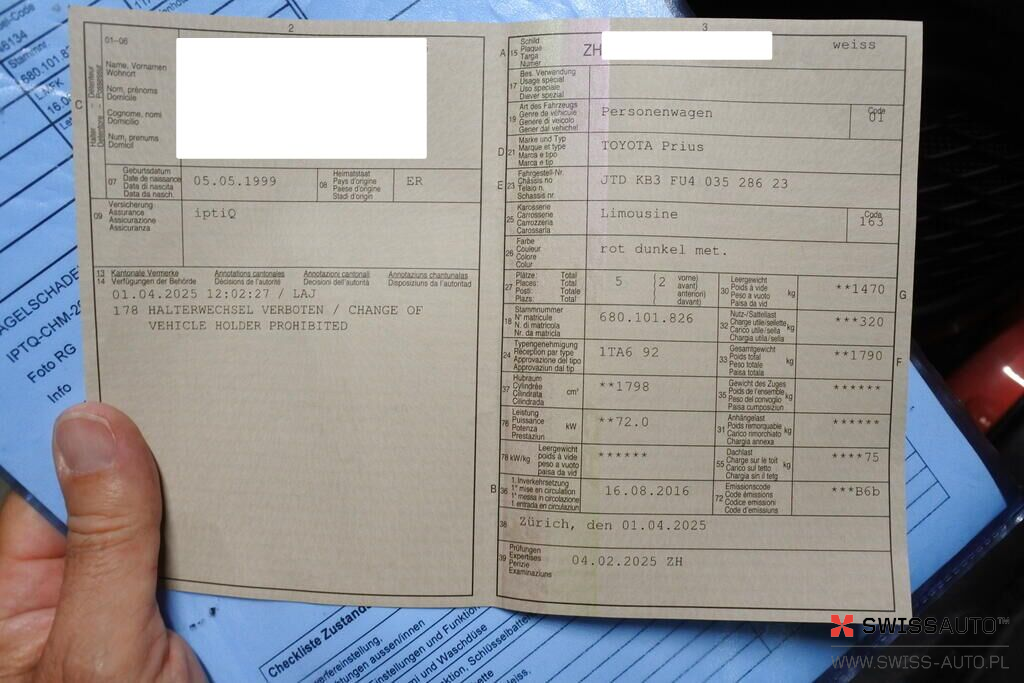 2
01-06
Halter Détenteur
Detentore Possessur
C
Name, Vornamen
Wohnort
Nom, prénoms
Domicile
Cognome, nomi
Domicilio
Num, prenums
Domicil
07
Geburtsdatum
Date de naissance
Data di nascita
Data da nasch.
05.05.1999
08
Heimatstaat
Pays d'origine
Paese d'origine
Stadi d'origin
ER
09
Versicherung
Assurance
Assicurazione
Assicuranza
iptiQ
13 Kantonale Vermerke Annotations cantonales Annotazioni cantonali Annotaziuns chantunalas
14 Verfügungen der Behörde Décisions de l'autorité Decisioni dell'autorità Disposiziuns da l'autoritad
01.04.2025 12:02:27 / LAJ
178 HALTERWECHSEL VERBOTEN / CHANGE OF
VEHICLE HOLDER PROHIBITED
3
A 15
Schild
Plaque
Targa
Numer
ZH
weiss
17
Bes. Verwendung
Usage spécial
Uso speciale
Diever spezial
19
Art des Fahrzeugs
Genre de véhicule
Genere di veicolo
Gener dal vehichel
Personenwagen
Code
01
D 21
Marke und Typ
Marque et type
Marca e tipo
Marca e tip
TOYOTA Prius
E 23
Fahrgestell-Nr.
Châssis no
Telaio n.
Schassis nr.
JTD KB3 FU4 035 286 23
25
Karosserie
Carrosserie
Carrozzeria
Carossaria
Limousine
Code
163
26
Farbe
Couleur
Colore
Colur
rot dunkel met.
27
Plätze: Total
Places: Total
Posti: Totale
Plazs: Total
5
2
vorne)
avant)
anteriori)
davant)
30
Leergewicht
Poids à vide
Peso a vuoto
Paisa da vid
kg
**1470
G
18
Stammnummer
N° matricule
N. di matricola
Nr. da matricla
680.101.826
32
Nutz-/Sattellast
Charge utile/sellette
Carico utile/sella
Chargia utila/sella
kg
***320
24
Typengenehmigung
Réception par type
Approvazione del tipo
Approvaziun dal tip
1TA6 92
33
Gesamtgewicht
Poids total
Peso totale
Paisa totala
kg
**1790
F
37
Hubraum
Cylindrée
Cilindrata
Cilindrada
cm³
**1798
35
Gewicht des Zuges
Poids de l'ensemble
Peso del convoglio
Paisa cumposiziun
kg
******
76
Leistung
Puissance
Potenza
Prestaziun
kW
**72.0
31
Anhängelast
Poids remorquable
Carico rimorchiato
Chargia annexa
kg
******
78 kW/kg
Leergewicht
poids à vide
peso a vuoto
paisa da vid
******
55
Dachlast
Charge sur le toit
Carico sul tetto
Chargia sin il tetg
kg
****75
B 36
1. Inverkehrsetzung
1re mise en circulation
1a messa in circolazione
1. entrada en circulaziun
16.08.2016
72
Emissionscode
Code émissions
Codice emissioni
Code d'emissiuns
***B6b
38
Zürich, den 01.04.2025
39
Prüfungen
Expertises
Perizie
Examinaziuns
04.02.2025 ZH
46134
Stammnr.
680.101.82
16.0
IPTQ-CHM-2
Foto RG
Info
Checkliste Zustand
SWISSAUTO™
WWW.SWISS-AUTO.PL